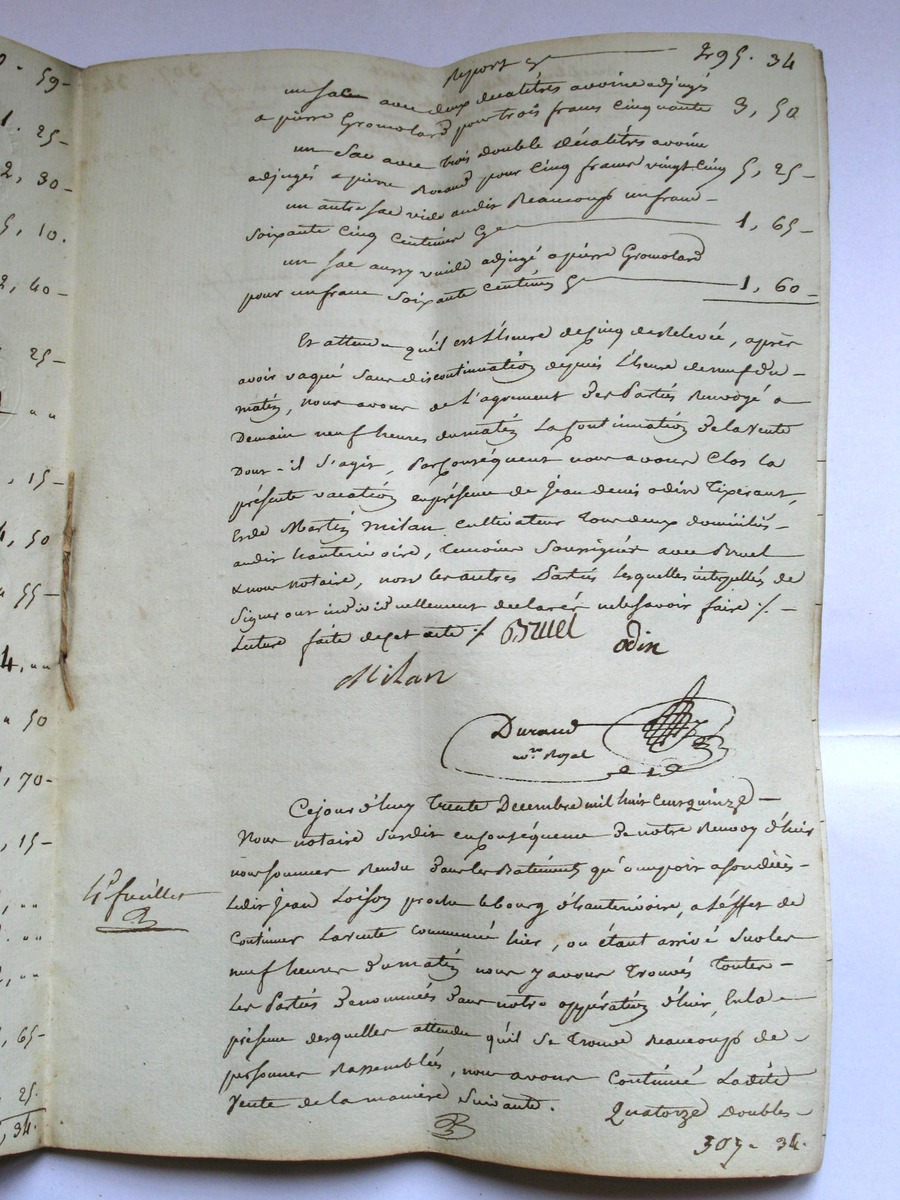 59-
1. 25-
2, 30-
5, 10.
2, 40-
25-
" "
, 15-
4, 50
" 55-
4. " "
" 50
1, 70-
, 15-
, " "
. " "
2, " "
, 65-
25.
, 34.
Report 295. 34
un sac avec deux décalitres avoine adjugés
a pierre Gromolard pour trois francs cinquante 3, 50
un sac avec trois double décalitres avoine
adjugés a pierre pour cinq francs vingt cinq 5, 25-
un autre sac vide audit Beaucoup un franc
soixante cinq centimes 1, 65-
un sac aussy vuide adjugé a pierre Gromolard
pour un franc soixante centimes 1, 60-
Et attendu qu'il est l'heure de cinq de relevée, après
avoir vaqué sans discontinuation depuis l'heure de neuf du
matin, nous avons de l'agrement des Parties Renvoyé a
Demain neuf heures du matin La Continuation de la vente
Dont-il s'agit, par conséquent nous avons Clos la
présente vacation en présence de Jean denis odin Tixerant,
Et de Martin Milan cultivateur Tous deux domiciliés
audit hauterivoire, temoins soussignés avec Bruel
& nous notaire, non les autres Parties lesquelles interpellés de
signer ont individuellement déclarés ne le savoir faire ./. -
Lecture faite de cet acte ./. Bruel odin
Milan
Durand
nore Royal
Ce jour d'huy Trente Decembre mil huit cent quinze
Nous notaire susdit en conséquence de notre Renvoy d'hier
nous sommes Rendu dans les Batiments
Ledit Jean Loison proche le bourg d'hauterivoire, a l'éffet de
Continuer la vente commencé hier, ou étant arrivé sur les
neuf heures du matin nous y avons Trouvés Toutes
Les Parties denommées dans notre opération d'hier, En la
présence desquelles attendu qu'il se trouve Beaucoups de
personnes Rassemblées, nous avons Continué Ladite
Vente de la manière suivante. Quatorze doubles
4e feuillet
307. 34.